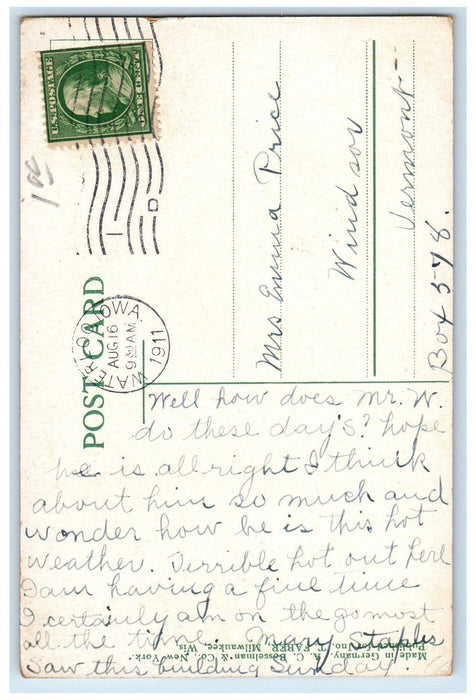 U.S. POSTAGE
ONE CENT
1 00
POST CARD
WATERLOO IOWA
AUG 16
9 30 AM
1911
1
D
Mrs Emma Price
Windsor
Vermont
Box 578.
Well how does Mr. W.
do these day's? hope
he is allright I think
about him so much and
wonder how he is this hot
weather. Terrible hot out here
I am having a fine time
I certainly am on the go most
all the time. Mary Staples
Saw this building Sunday
Published for Jno. T. FABER, Milwaukee, Wis.
Made in Germany. A. C. Bosselman & Co., New York.